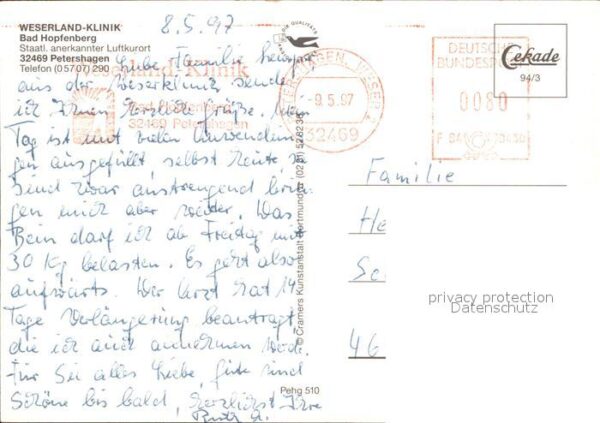 WESERLAND-KLINIK
Bad Hopfenberg
Staatl. anerkannter Luftkurort
32469 Petershagen
Telefon (05707) 290
8.5.97
Liebe Familie
aus der Weserklinik sende
ich Ihnen herzliche Grüße. Mein
Tag ist mit vielen Anwendun
gen ausgefüllt, selbst heute, sie
sind zwar anstrengend brin
gen mich aber weiter. Das
Bein darf ich ab Freitag mit
30 Kg belasten. Es geht also
aufwärts. Der Arzt hat 14
Tage Verlängerung beantragt,
die ich auch annehmen werde.
Für Sie alles Liebe, Gute und
Schöne bis bald, herzlichst Ihre
Ruth
land-Klinik
Bad Hopfenberg
32469 Petershagen
PETERSHAGEN, WESER
-9.5.97
32469
DEUTSCHE
BUNDESPOST
0080
Cekade
94/3
© Cramers Kunstanstalt Dortmund
Pehg 510
Familie
He
Sc
46
privacy protection
Datenschutz